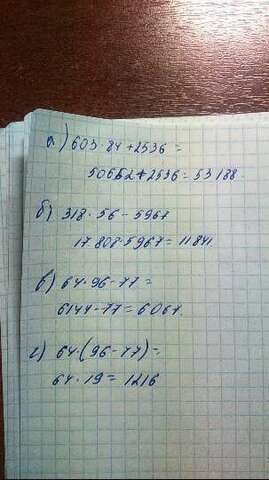 а) 603·84+2536=
50652+2536=53188.
б) 318·56-5967
17808-5967=11841.
в) 64·96-77=
6144-77=6067.
г) 64(96-77)=
64·19=1216